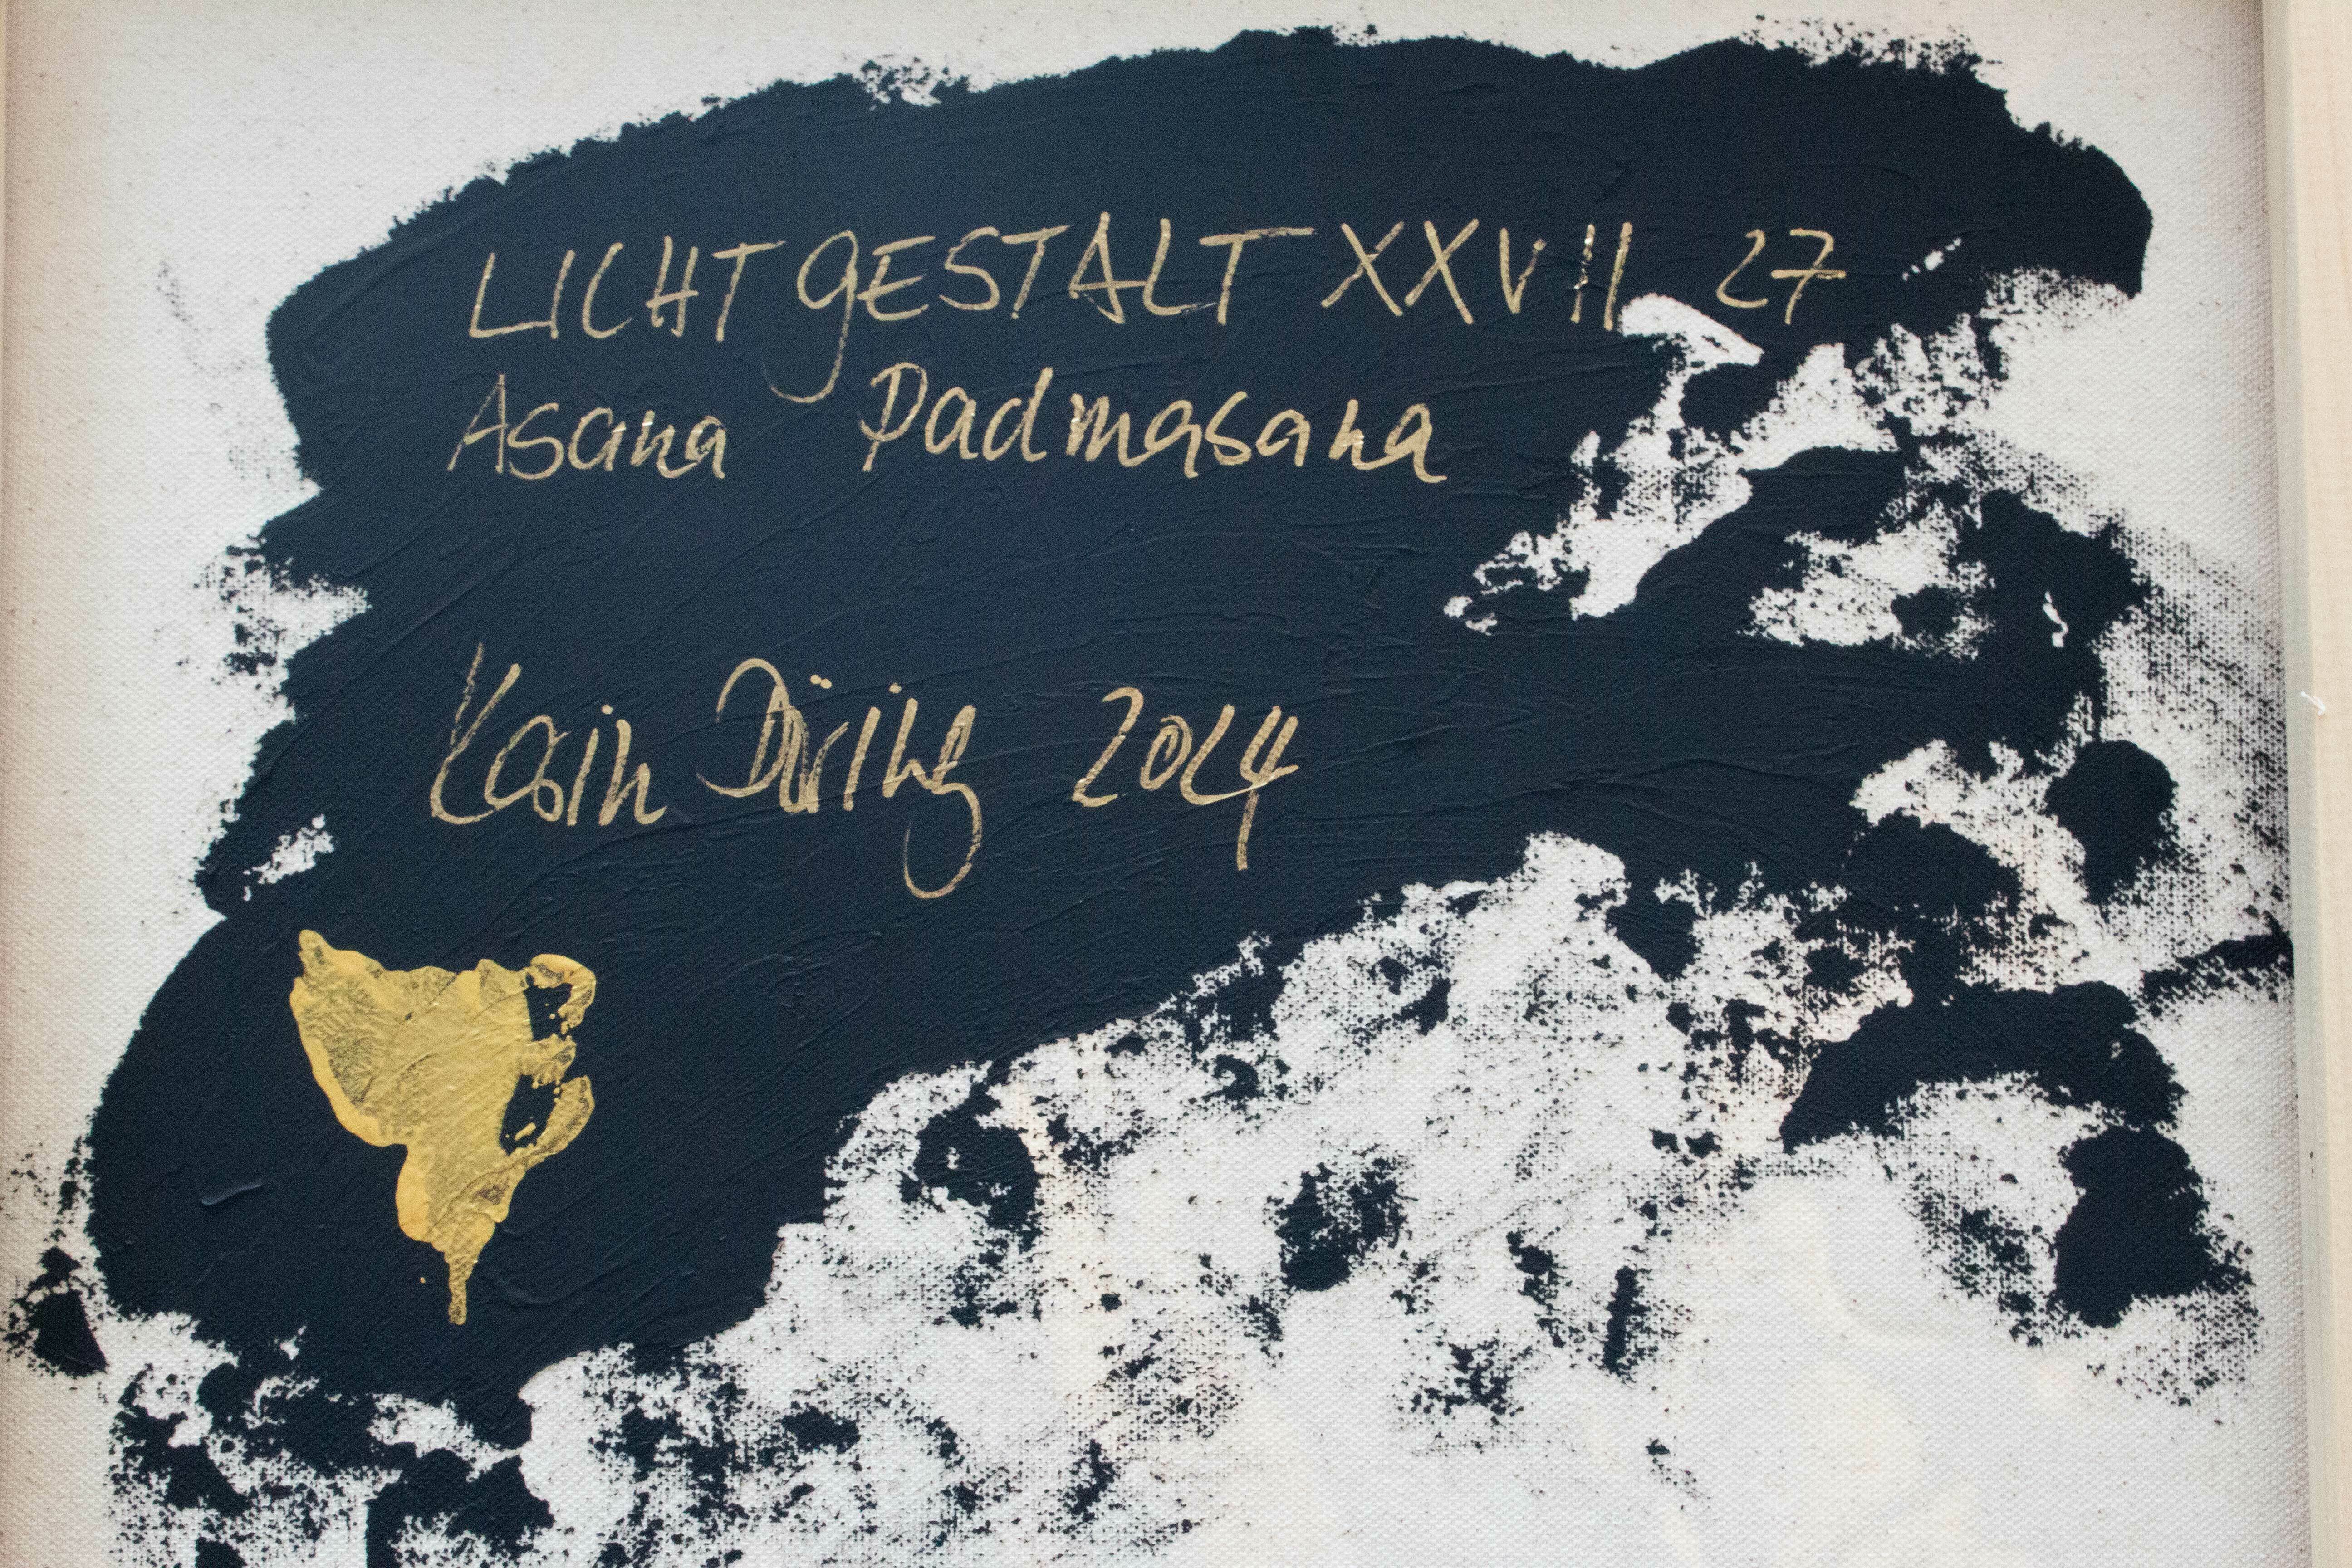 LICHTgESTALT XXVII 27
Asana Padmasana
Karin Düring 2024